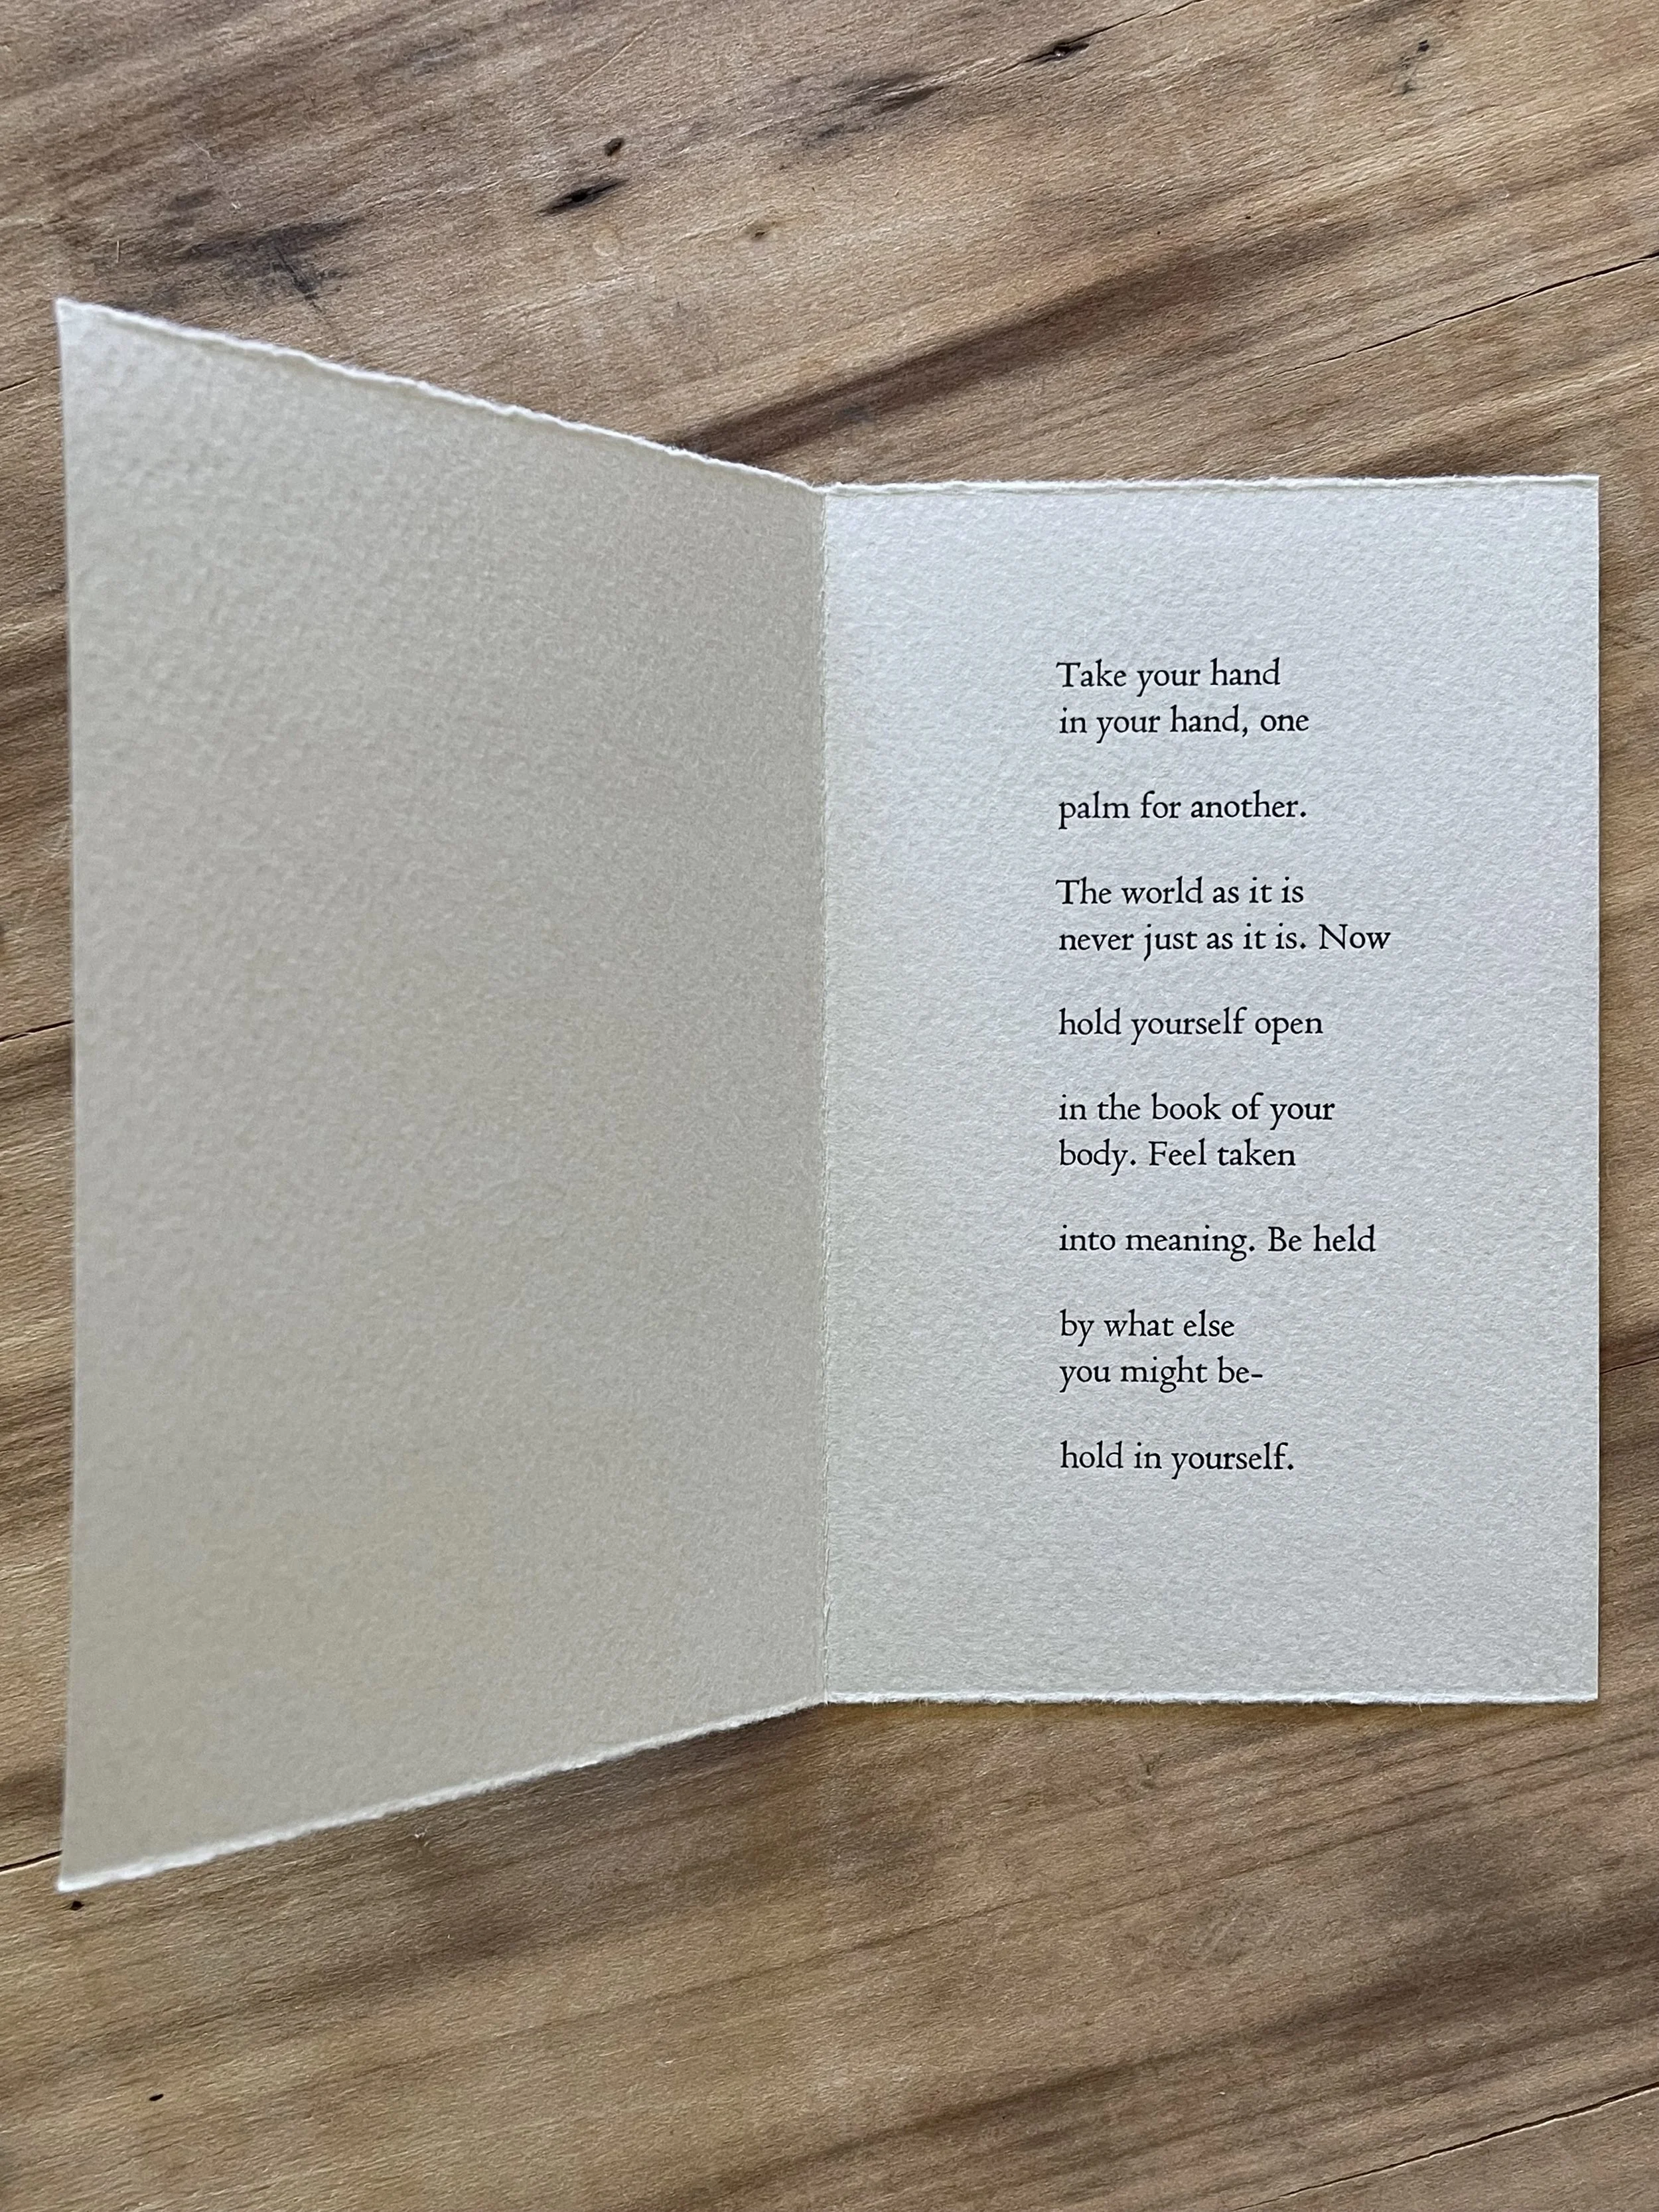 Take your hand
in your hand, one
palm for another.
The world as it is
never just as it is. Now
hold yourself open
in the book of your
body. Feel taken
into meaning. Be held
by what else
you might be-
hold in yourself.